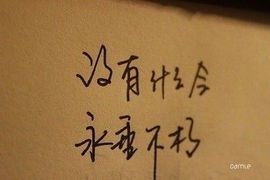 没有什么会
永垂不朽
Damle